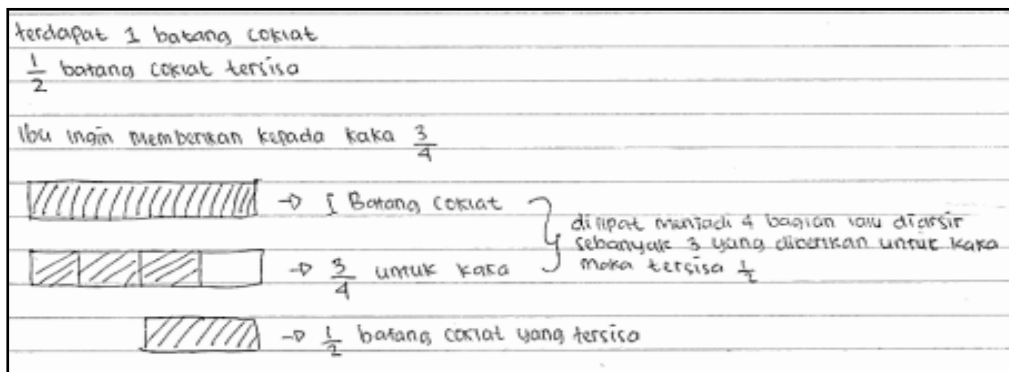 terdapat 1 batang coklat
1/2 batang coklat tersisa
Ibu ingin memberikan kepada kaka 3/4
→ 1 Batang coklat
→ 3/4 untuk kaka
dilipat menjadi 4 bagian lalu diarsir
sebanyak 3 yang diberikan untuk kaka
maka tersisa 1/2
→ 1/2 batang coklat yang tersisa